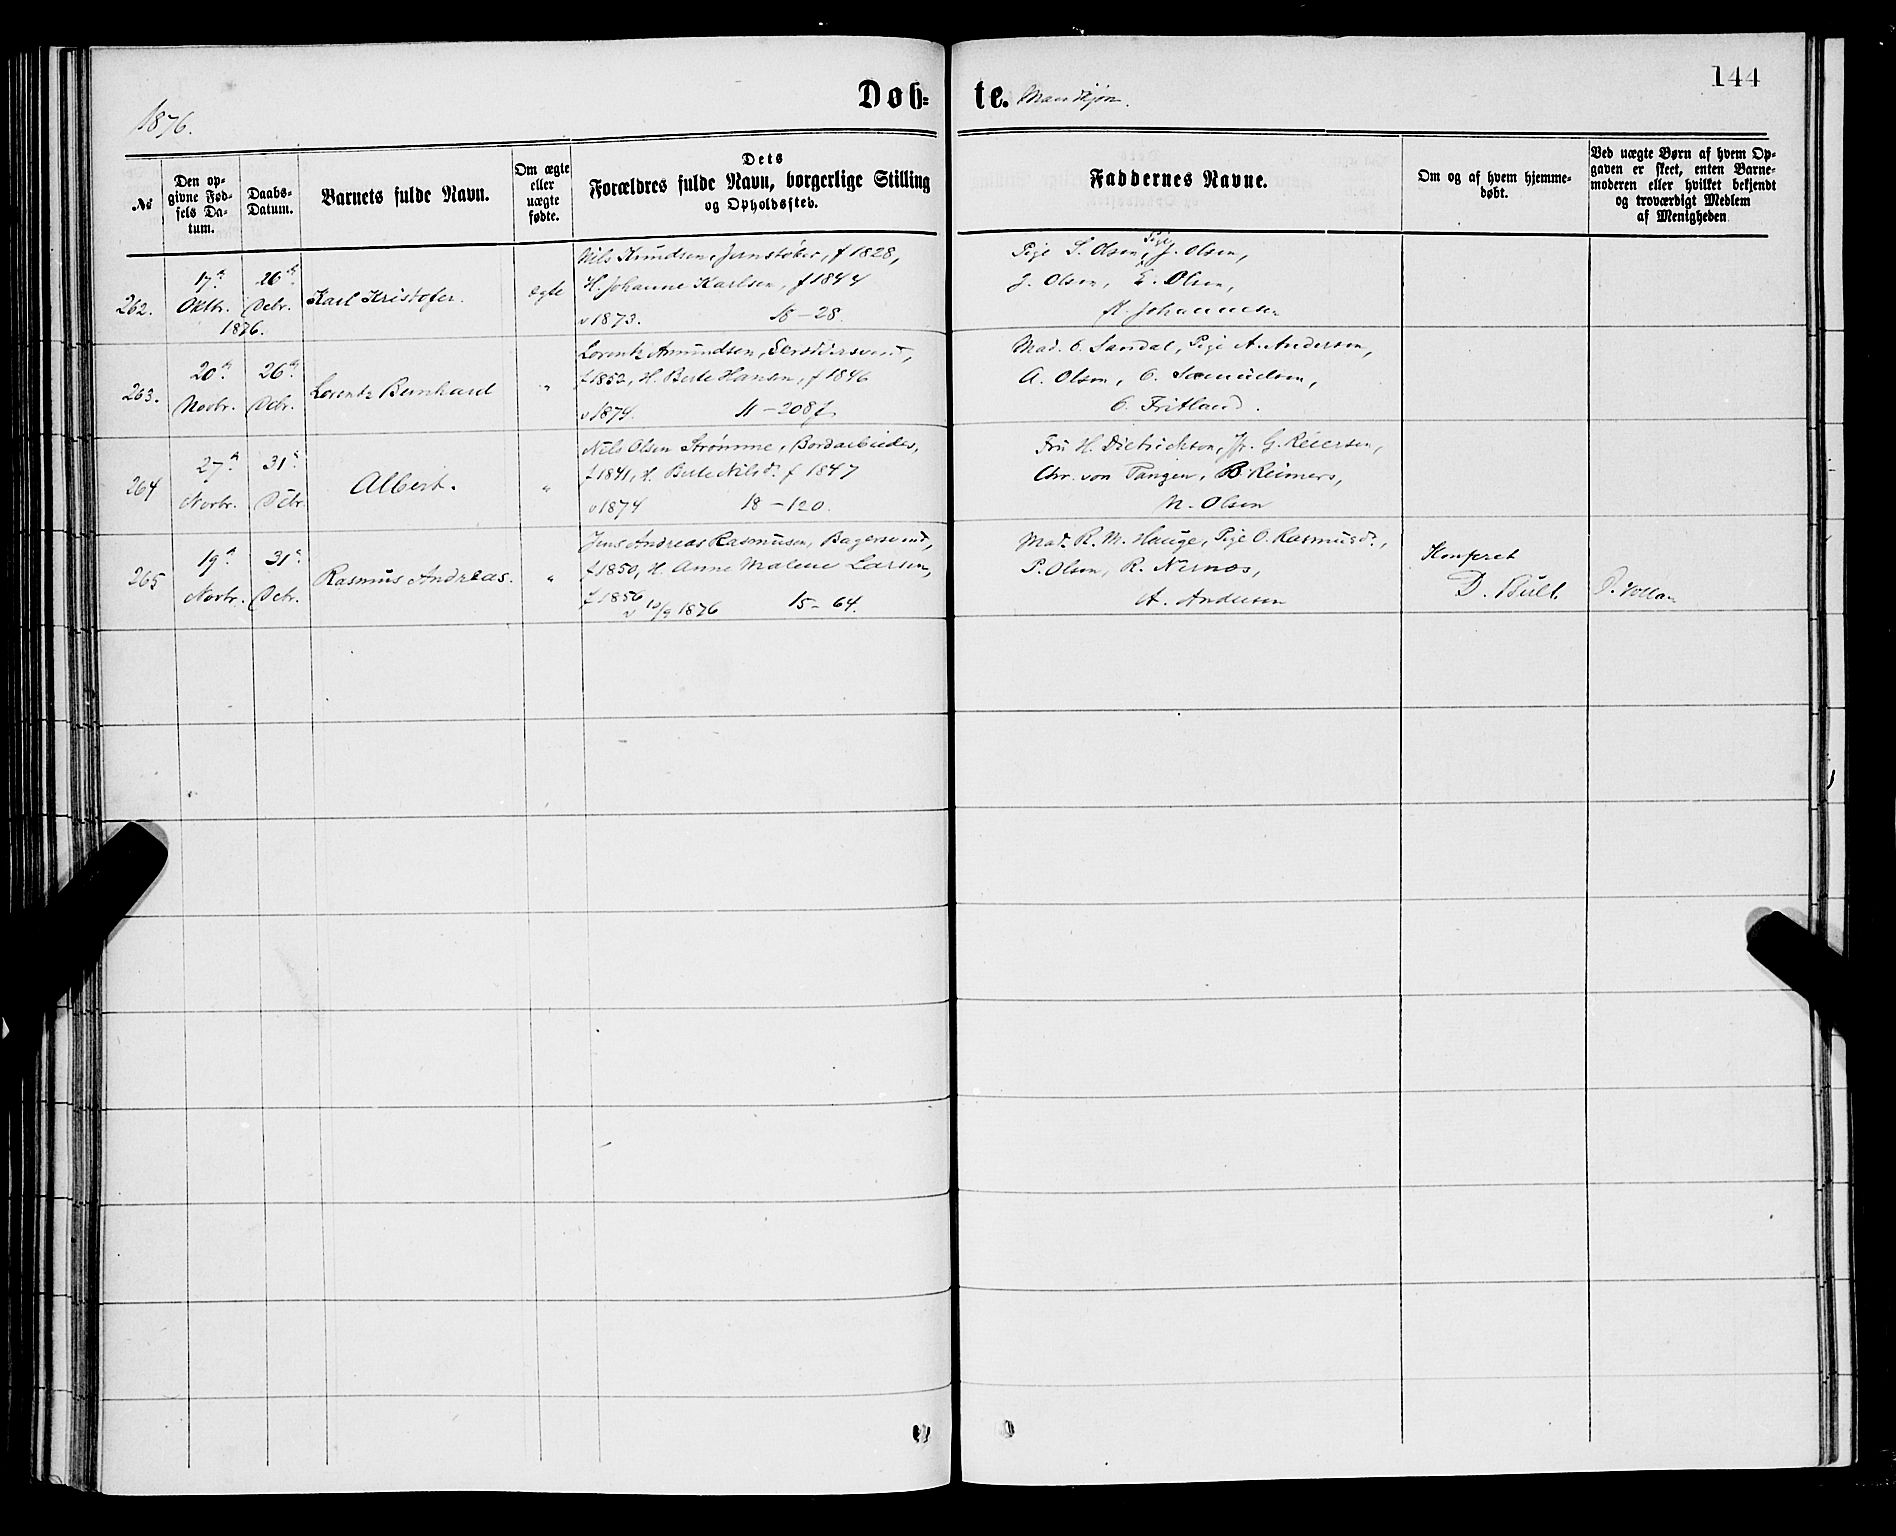 144
Døb=
te. Mandkjøn.
1876.
№
Den op-
givne Fød-
sels Da-
tum.
Daabs-
Datum.
Barnets fulde Navn.
Om ægte
eller
uægte
fødte.
Dets
Forældres fulde Navn, borgerlige Stilling
og Opholdssted.
Faddernes Navne.
Om og af hvem hjemme-
døbt.
Ved uægte Børn af hvem Op-
gaven er skeet, enten Barne-
moderen eller hvilket bekjendt
og troværdigt Medlem
af Menigheden
262.
17de
Oktbr.
1876.
26de
Debr.
Karl Kristofer.
ægte
Nils Knudsen, Jernstøber, f 1828,
H. Johanne Karlsen, f 1844
v 1873. 18 - 28.
Pige S. Olsen, Pige J. Olsen,
J. Olsen, E. Olsen,
A. Johannesen
263.
20de
Novbr.
26de
Debr.
Lorentz Bernhard
"
Lorentz Amundsen,
f 1852, H. Berte Hansen, f 1846
v 1874. 11 - 208f
Mad. C. Sandal, Pige A. Andersen,
A. Olsen, O. Samuelsen,
C. Fritland.
264
27de
Novbr.
31te
Debr
Albert.
"
Nils Olsen Strømme, Bordarbeider,
f 1841, H. Berte Nilsd. f 1847
v 1874 18 - 120.
Fru H. Dietrichson, Fr. G. Reiersen,
Chr. von Tangen, B. Reimers,
N. Olsen
265
19de
Novbr.
31te
Debr.
Rasmus Andreas.
"
Jens Andreas Rasmusen, Bagersvend,
f 1850, H. Anne Malene Larsen,
f 1856
v 10/9 1876 15 - 64.
Mad. R. M. Hauge, Pige O. Rasmusd.,
P. Olsen, R. Nernæs,
A. Andersen
Konferet
D. Bull.
O. Vollan